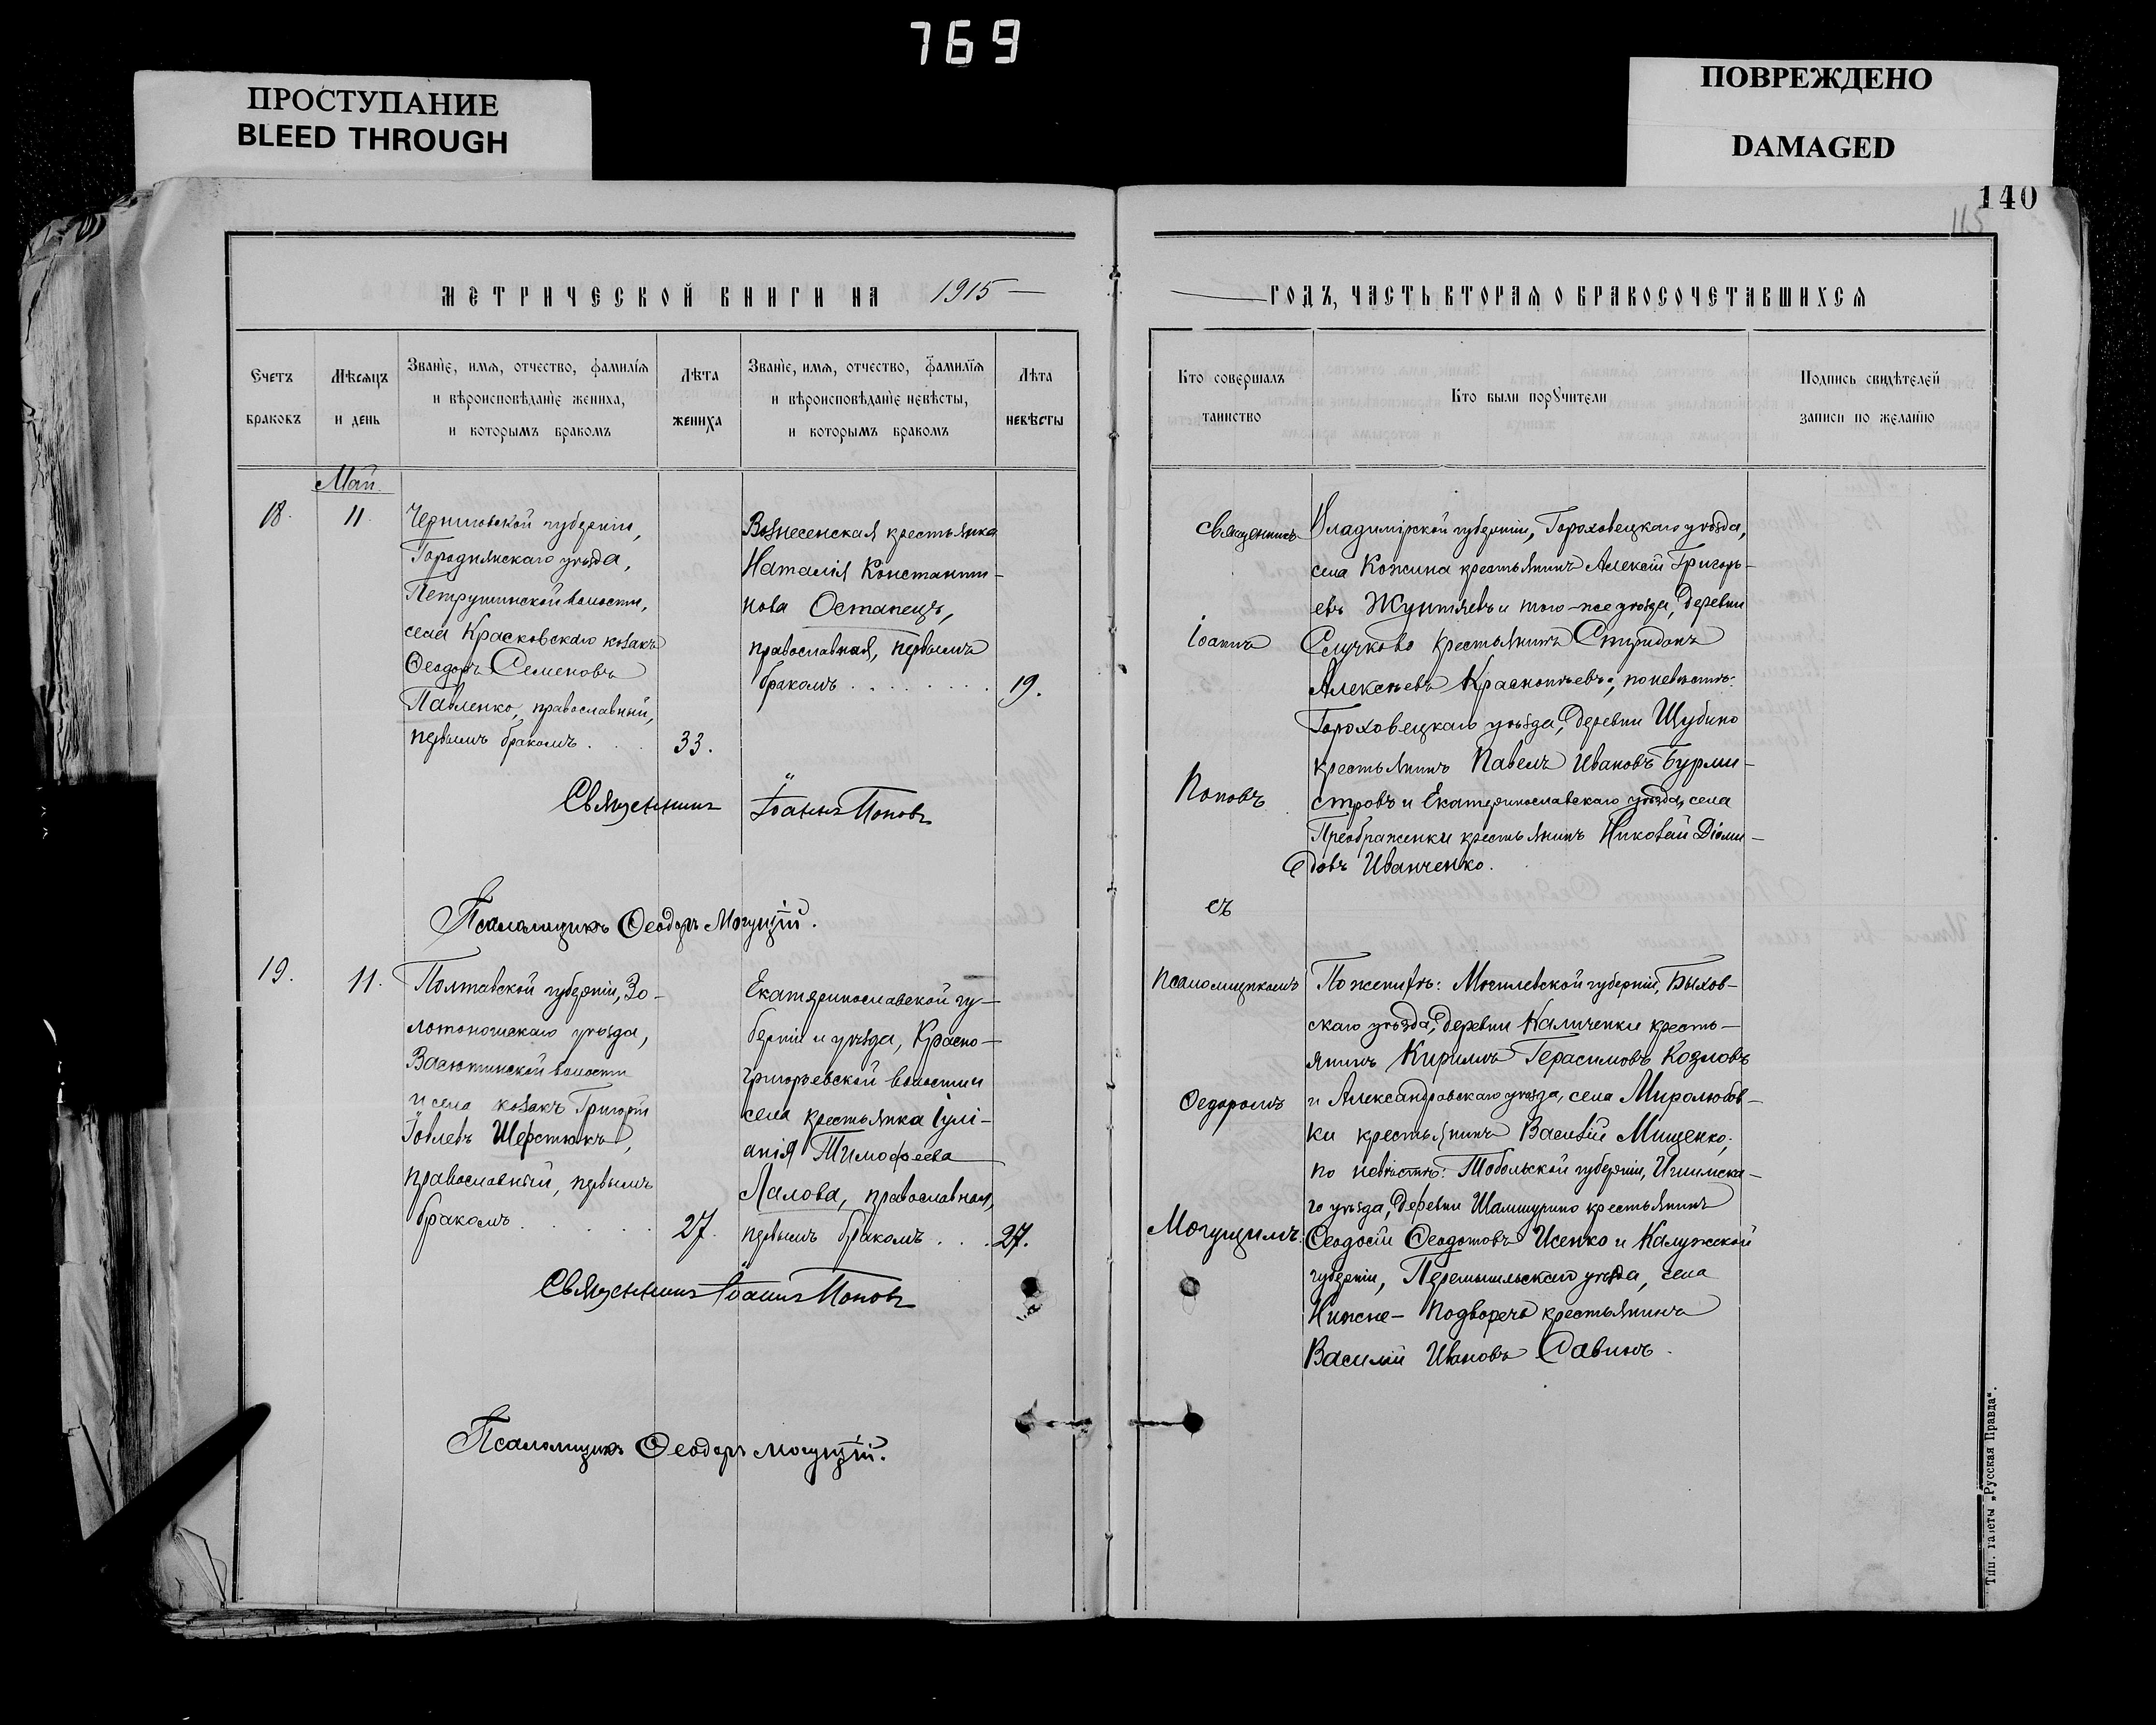 769
ПРОСТУПАНИЕ
BLEED THROUGH
ПОВРЕЖДЕНО
DAMAGED
140
115
МЕТРИЧЕСКОЙ КНИГИ НА 1915
Счетъ
браковъ
Мѣсяцъ
и день
Званіе, имя, отчество, фамилія
и вѣроисповѣданіе жениха,
и которымъ бракомъ
Лѣта
жениха
Званіе, имя, отчество, фамилія
и вѣроисповѣданіе невѣсты,
и которымъ бракомъ
Лѣта
невѣсты
Май
18. 11.
Черниговской губерніи,
Городнянскаго уѣзда,
Петрушинской волости,
села Красковскаго козакъ
Ѳеодоръ Семеновъ
Павленко, православный,
первымъ бракомъ . . . 33.
Вознесенская крестьянка
Наталія Константи-
нова Останецъ,
православная, первымъ
бракомъ . . . . . . . . 19.
Священникъ Іоаннъ Поповъ
Псаломщикъ Ѳеодоръ Могущій.
19. 11.
Полтавской губерніи, Зо-
лотоношскаго уѣзда,
Васютинской волости
и села козакъ Григорій
Іовлевъ Шерстюкъ,
православный, первымъ
бракомъ . . . . . 27.
Екатеринославской гу-
берніи и уѣзда, Красно-
григорьевской волости и
села крестьянка Іулі-
анія Тимофеева
Лалова, православная,
первымъ бракомъ . . . 27.
Священникъ Іоаннъ Поповъ
Псаломщикъ Ѳеодоръ Могущій.
ГОДЪ, ЧАСТЬ ВТОРАЯ О БРАКОСОЧЕТАВШИХСЯ
Кто совершалъ
таинство
Кто были поручители
Подпись свидѣтелей
записи по желанію
Священникъ
Іоаннъ
Поповъ
съ
псаломщикомъ
Ѳедоромъ
Могущимъ.
Владимірской губерніи, Гороховецкаго уѣзда,
села Кожина крестьянинъ Алексій Григорь-
евъ Жунтяевъ и того-же уѣзда, деревни
Случково крестьянинъ Спиридонъ
Алексѣевъ Краснопѣевъ; по невѣстѣ:
Гороховецкаго уѣзда, деревни Шубино
крестьянинъ Павелъ Ивановъ Бурми-
стровъ и Екатеринославскаго уѣзда, села
Преображенки крестьянинъ Николай Діоми-
довъ Иванченко.
По женихѣ: Могилевской губерніи, Быхов-
скаго уѣзда, деревни Каличенки кресть-
янинъ Кириллъ Герасимовъ Козловъ
и Александровскаго уѣзда, села Миролюбов-
ки крестьянинъ Василій Мищенко;
по невѣстѣ: Тобольской губерніи, Ишимска-
го уѣзда, деревни Шамшурино крестьянинъ
Ѳеодосій Ѳеодотовъ Исенко и Калужской
губерніи, Перемышльскаго уѣзда, села
Нижне-Подворечь крестьянинъ
Василій Ивановъ Савинъ.
Тип. газеты „Русская Правда".